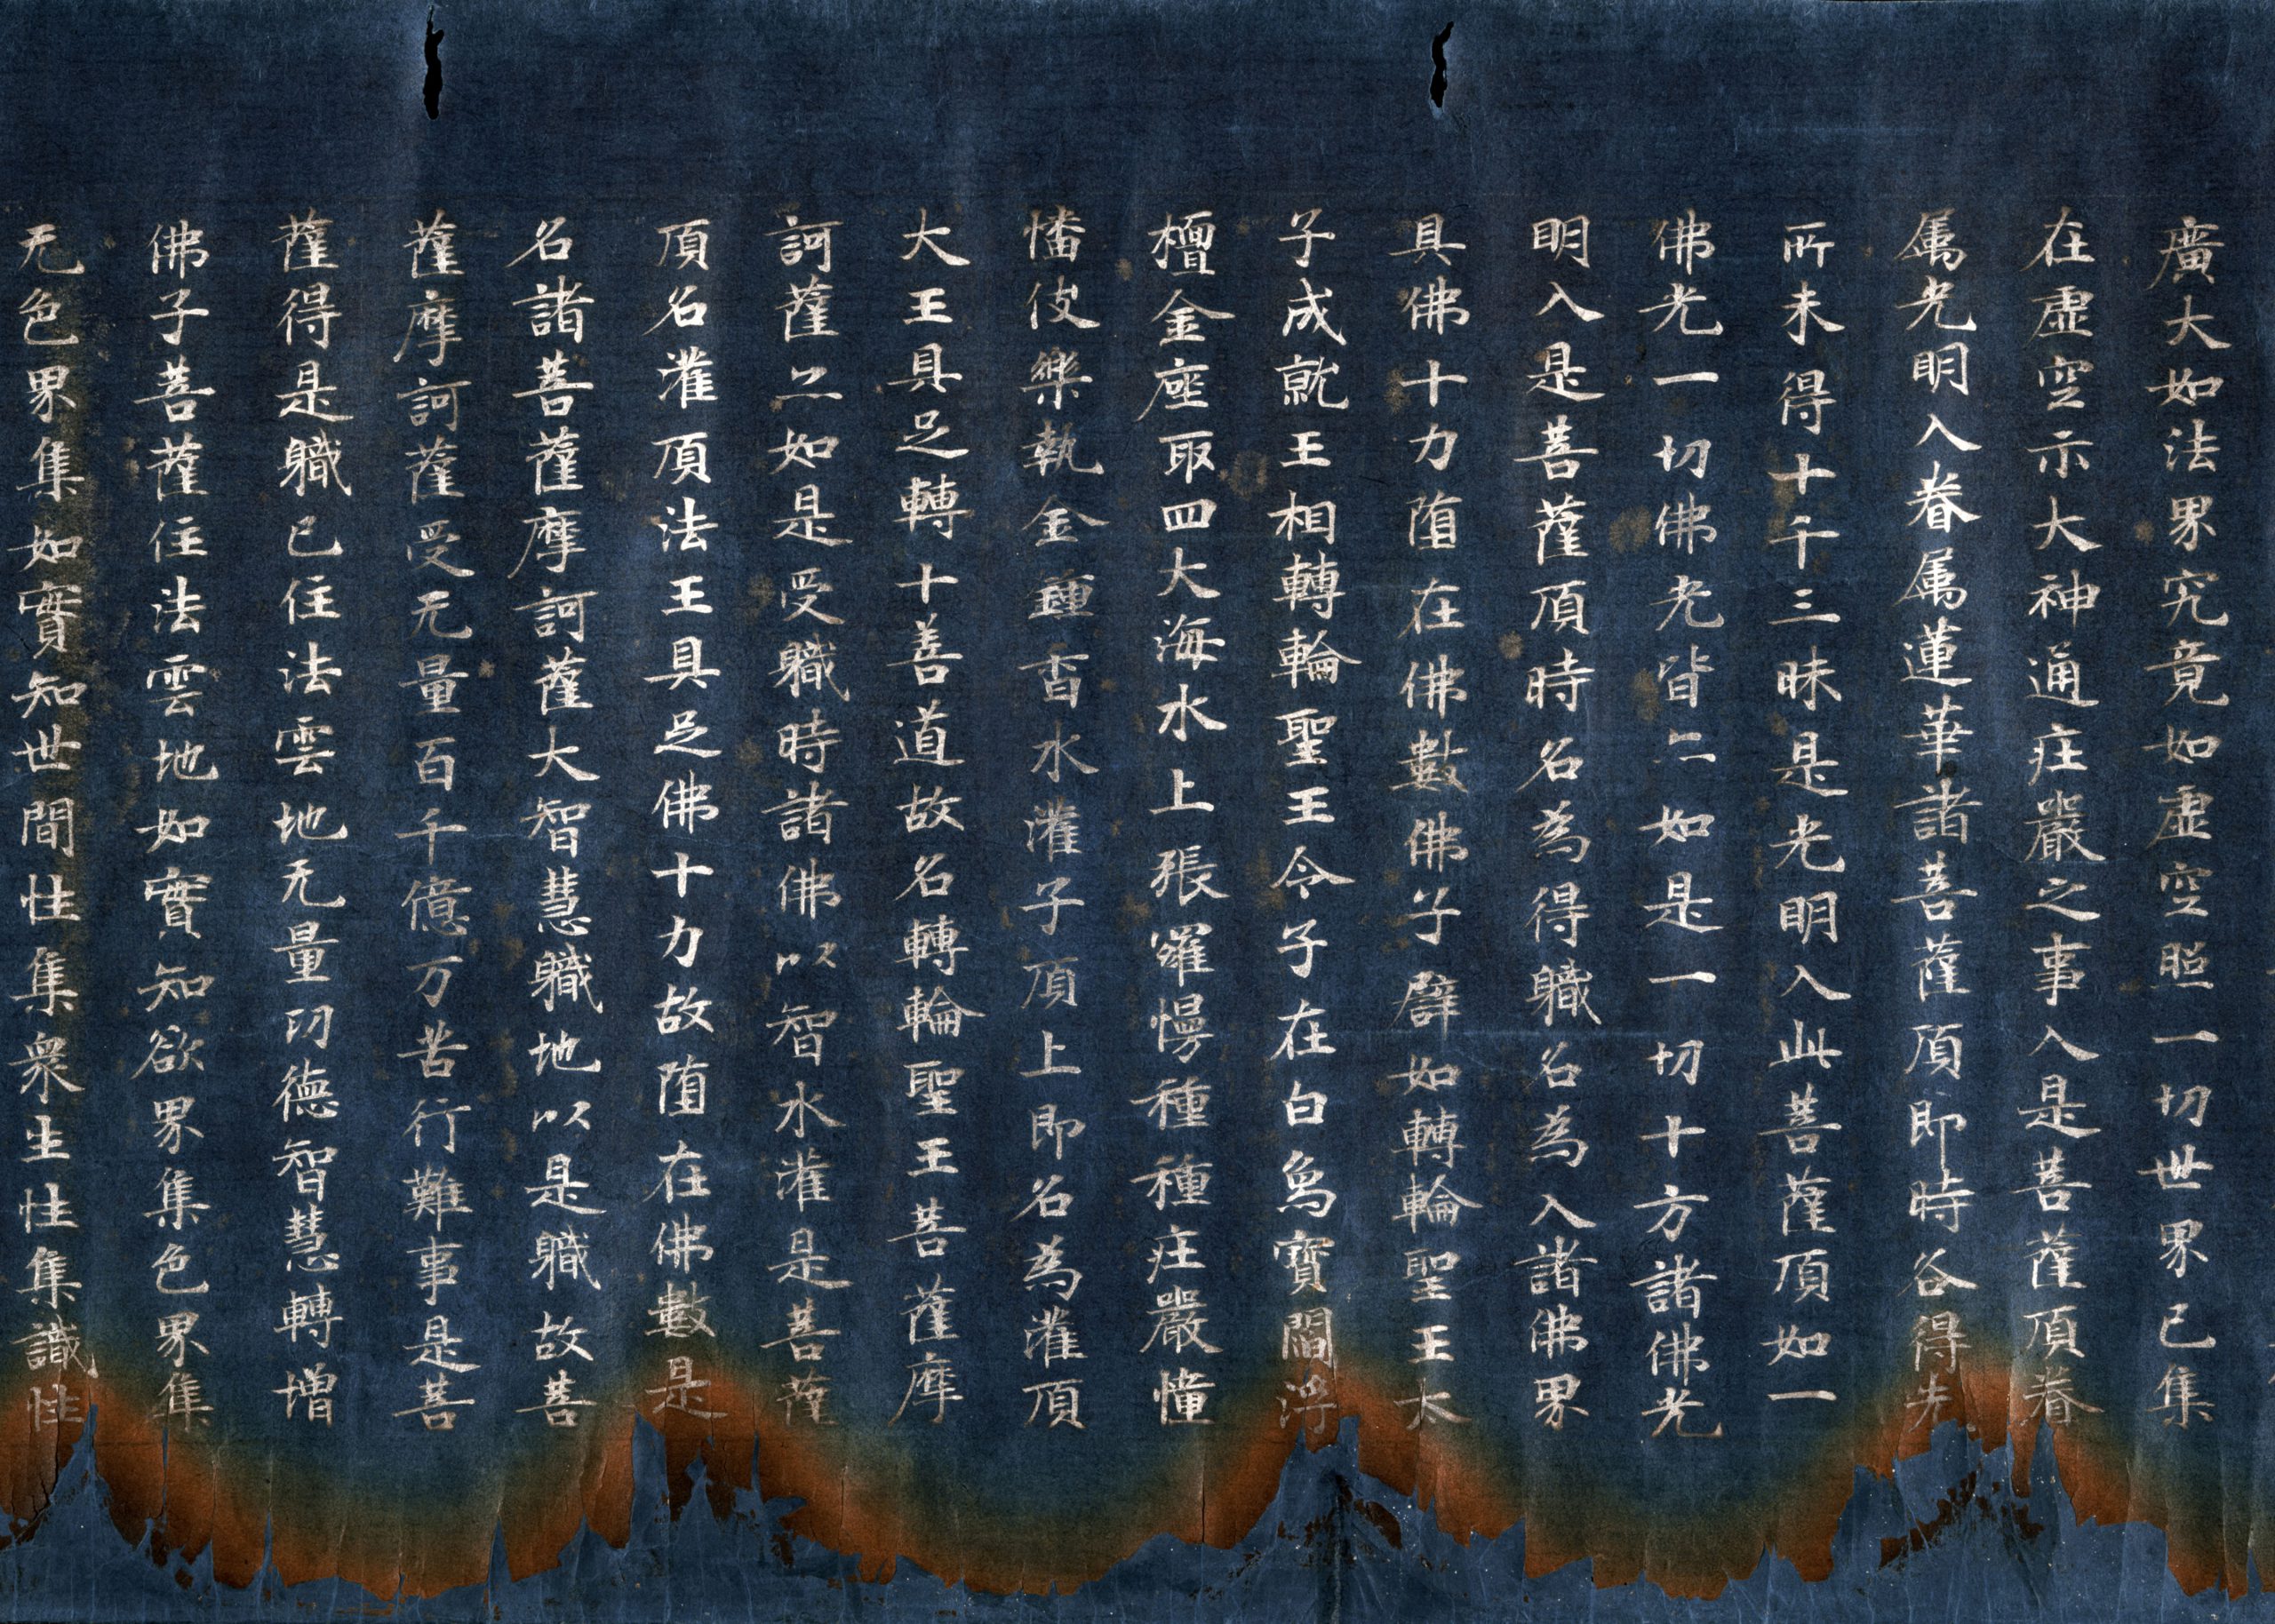 廣大如法界究竟如虛空照一切世界已集
在虛空示大神通庄嚴之事入是菩薩頂眷
属光明入眷属蓮華諸菩薩頂即時各得先
所未得十千三昧是光明入此菩薩頂如一
佛光一切佛光皆亦如是一切十方諸佛光
明入是菩薩頂時名為得職名為入諸佛界
具佛十力墮在佛數佛子譬如轉輪聖王太
子成就王相轉輪聖王令子在白烏寶閻浮
檀金座取四大海水上張羅幔種種庄嚴幢
幡伎樂執金鍾香水灌子頂上即名為灌頂
大王具足轉十善道故名轉輪聖王菩薩摩
訶薩亦如是受職時諸佛以智水灌是菩薩
頂名灌頂法王具足佛十力故墮在佛數是
名諸菩薩摩訶薩大智慧職地以是職故菩
薩摩訶薩受无量百千億万苦行難事是菩
薩得是職已住法雲地无量功德智慧轉增
佛子菩薩住法雲地如實知欲界集色界集
无色界集如實知世間性集衆生性集識性